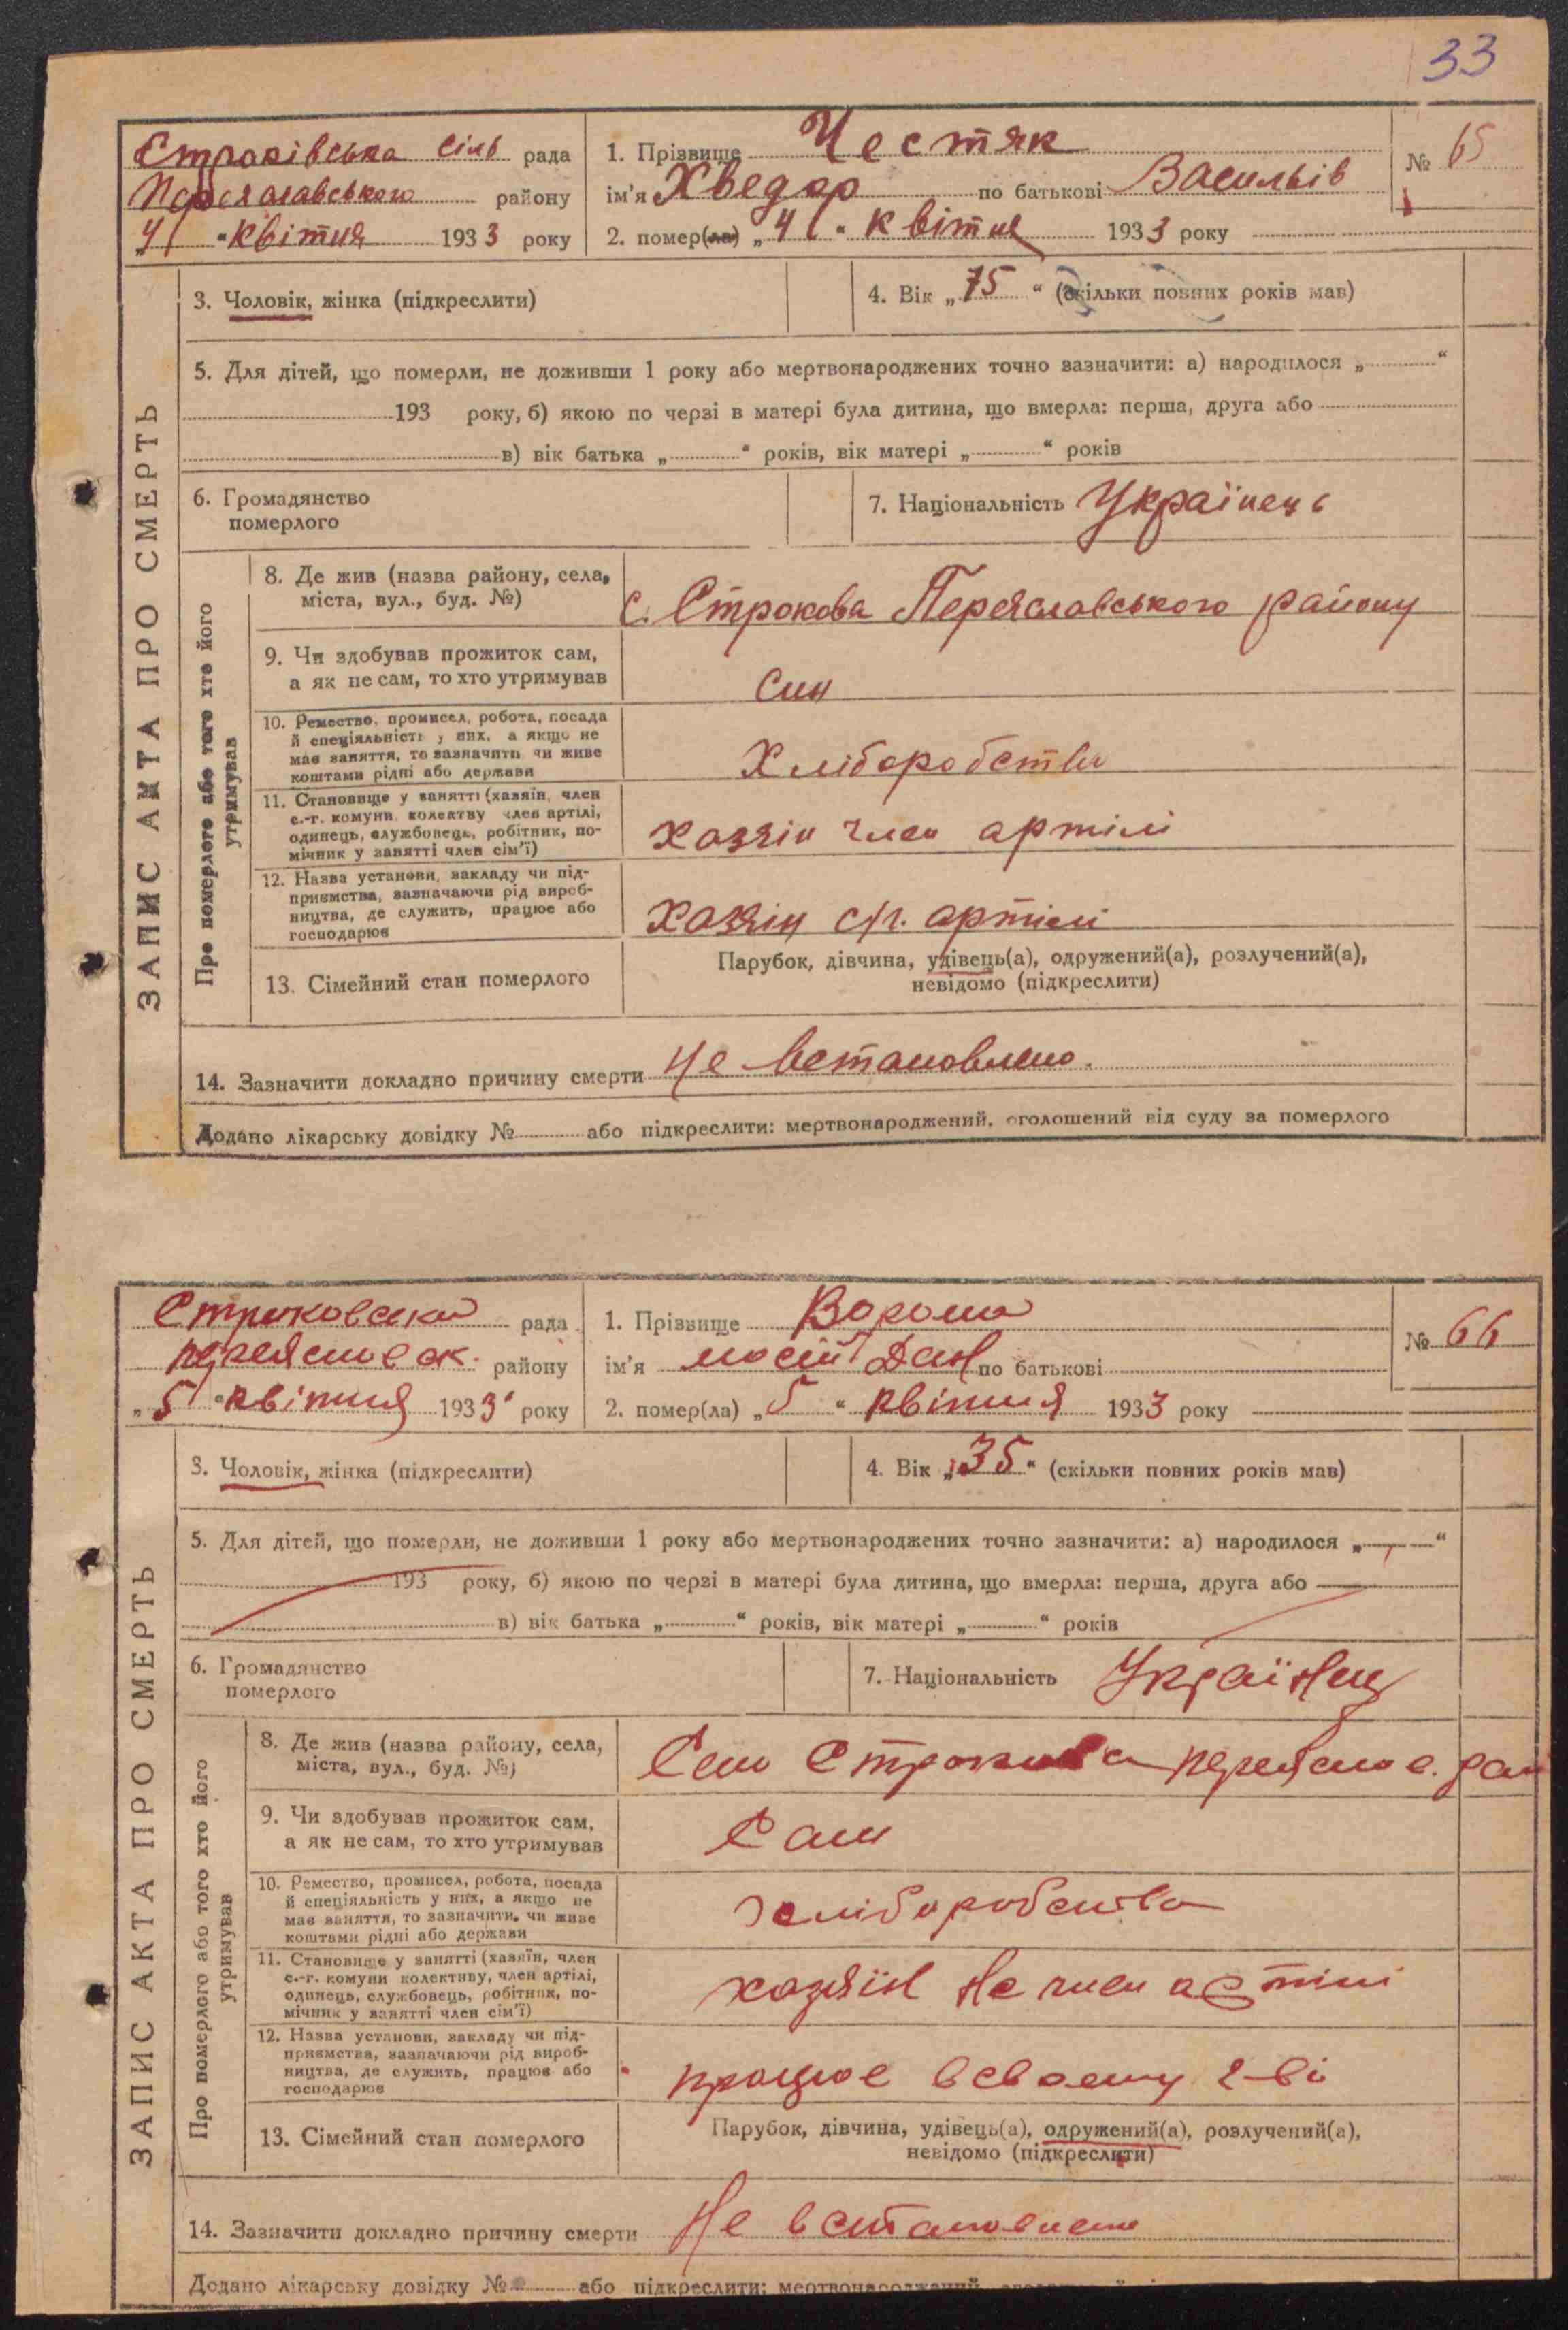 33
Строківська сіль рада
Переяславського району
„4" квітня 1933 року
1. Прізвище Честяк
ім'я Хведор по батькові Васильів
2. помер(ла) „4" квітня 1933 року
№ 65
ЗАПИС АКТА ПРО СМЕРТЬ
3. Чоловік, жінка (підкреслити)
4. Вік „75" (скільки повних років мав)
5. Для дітей, що померли, не доживши 1 року або мертвонароджених точно зазначити: а) народилося „ "
193 року, б) якою по черзі в матері була дитина, що вмерла: перша, друга або
в) вік батька „ " років, вік матері „ " років
6. Громадянство
померлого
7. Національність Українець
Про померлого або того хто його
утримував
8. Де жив (назва району, села,
міста, вул., буд. №)
с. Строкова Переяславського району
9. Чи здобував прожиток сам,
а як не сам, то хто утримував
син
10. Ремество, промисел, робота, посада
й спеціяльність у них, а якщо не
має заняття, то зазначити чи живе
коштами рідні або держави
Хліборобство
11. Становище у занятті (хазяїн, член
с.-г. комуни, колективу член артілі,
одинець, службовець, робітник, по-
мічник у занятті член сім'ї)
Хазяін член артілі
12. Назва установи, закладу чи під-
приємства, зазначаючи рід вироб-
ництва, де служить, працює або
господарює
Хазяін с/г. артілі
13. Сімейний стан померлого
Парубок, дівчина, удівець(а), одружений(а), розлучений(а),
невідомо (підкреслити)
14. Зазначити докладно причину смерти Не встановлено.
Додано лікарську довідку № або підкреслити: мертвонароджений, оголошений від суду за померлого
рада
району
„5" квітня 1933 року
1. Прізвище Ворона
ім'я Мосій Дан по батькові
2. помер(ла) „5" квітня 1933 року
№ 66
ЗАПИС АКТА ПРО СМЕРТЬ
3. Чоловік, жінка (підкреслити)
4. Вік „35" (скільки повних років мав)
5. Для дітей, що померли, не доживши 1 року або мертвонароджених точно зазначити: а) народилося „ "
193 року, б) якою по черзі в матері була дитина, що вмерла: перша, друга або
в) вік батька „ " років, вік матері „ " років
6. Громадянство
померлого
7. Національність Українец
Про померлого або того хто його
утримував
8. Де жив (назва району, села,
міста, вул., буд. №)
Село Строкова переяслов. рай
9. Чи здобував прожиток сам,
а як не сам, то хто утримував
Сам
10. Ремество, промисел, робота, посада
й спеціяльність у них, а якщо не
має заняття, то зазначити, чи живе
коштами рідні або держави
хліборобство
11. Становище у занятті (хазяїн, член
с.-г. комуни колективу, член артілі,
одинець, службовець, робітник, по-
мічник у занятті член сім'ї)
хазяїн не член артілі
12. Назва установи, закладу чи під-
приємства, зазначаючи рід вироб-
ництва, де служить, працює або
господарює
працює в своему г-ві
13. Сімейний стан померлого
Парубок, дівчина, удівець(а), одружений(а), розлучений(а),
невідомо (підкреслити)
14. Зазначити докладно причину смерти Не встановлено
Додано лікарську довідку № або підкреслити: мертвонароджений